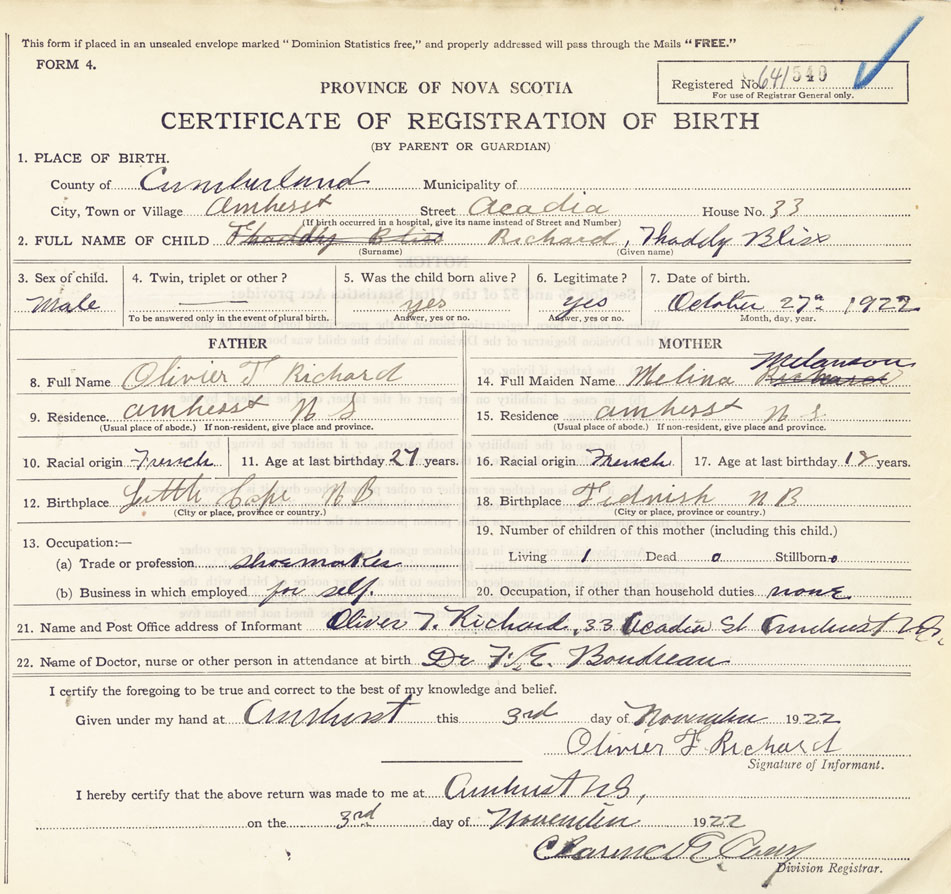 This form if placed in an unsealed envelope marked "Dominion Statistics free," and properly addressed will pass through the Mails "FREE."
FORM 4.
Registered No. 641540
For use of Registrar General only.
PROVINCE OF NOVA SCOTIA
CERTIFICATE OF REGISTRATION OF BIRTH
(BY PARENT OR GUARDIAN)
1. PLACE OF BIRTH.
County of Cumberland Municipality of
City, Town or Village Amherst Street Acadia House No. 33
(If birth occurred in a hospital, give its name instead of Street and Number)
2. FULL NAME OF CHILD Thaddy Bliss Richard, Thaddy Bliss
(Surname) (Given name)
3. Sex of child. 4. Twin, triplet or other? 5. Was the child born alive? 6. Legitimate? 7. Date of birth.
Male yes yes October 27th 1922
To be answered only in the event of plural birth. Answer, yes or no. Answer, yes or no. Month, day, year.
FATHER MOTHER
Melanson
8. Full Name Olivier T Richard 14. Full Maiden Name Melina Richard
9. Residence Amherst N S 15. Residence Amherst N S.
(Usual place of abode.) If non-resident, give place and province. (Usual place of abode.) If non-resident, give place and province.
10. Racial origin French 11. Age at last birthday 27 years. 16. Racial origin French 17. Age at last birthday years.
12. Birthplace N B 18. Birthplace Tidnish N B
(City or place, province or country.) (City or place, province or country.)
13. Occupation:— 19. Number of children of this mother (including this child.)
(a) Trade or profession shoemaker Living 1 Dead 0 Stillborn 0
(b) Business in which employed for self. 20. Occupation, if other than household duties none
21. Name and Post Office address of Informant Oliver T. Richard, 33 Acadia St Amherst N.S.
22. Name of Doctor, nurse or other person in attendance at birth Dr F. E. Boudreau
I certify the foregoing to be true and correct to the best of my knowledge and belief.
Given under my hand at Amherst this 3rd day of November 1922
Olivier T. Richard
Signature of Informant.
I hereby certify that the above return was made to me at Amherst N.S,
on the 3rd day of November 1922
Clarence E
Division Registrar.